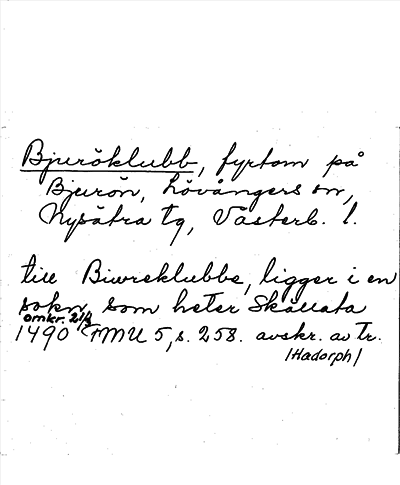 Bjuröklubb, fyrtorn på
Bjurön, Lövångers sn,
Nysätra tg, Västerb. l.
till Biwreklubbe, ligger i en
sokn, som heter Skällata
omkr. 21/2
1490 FMU 5, s. 258. avskr. av tr.
/Hadorph/